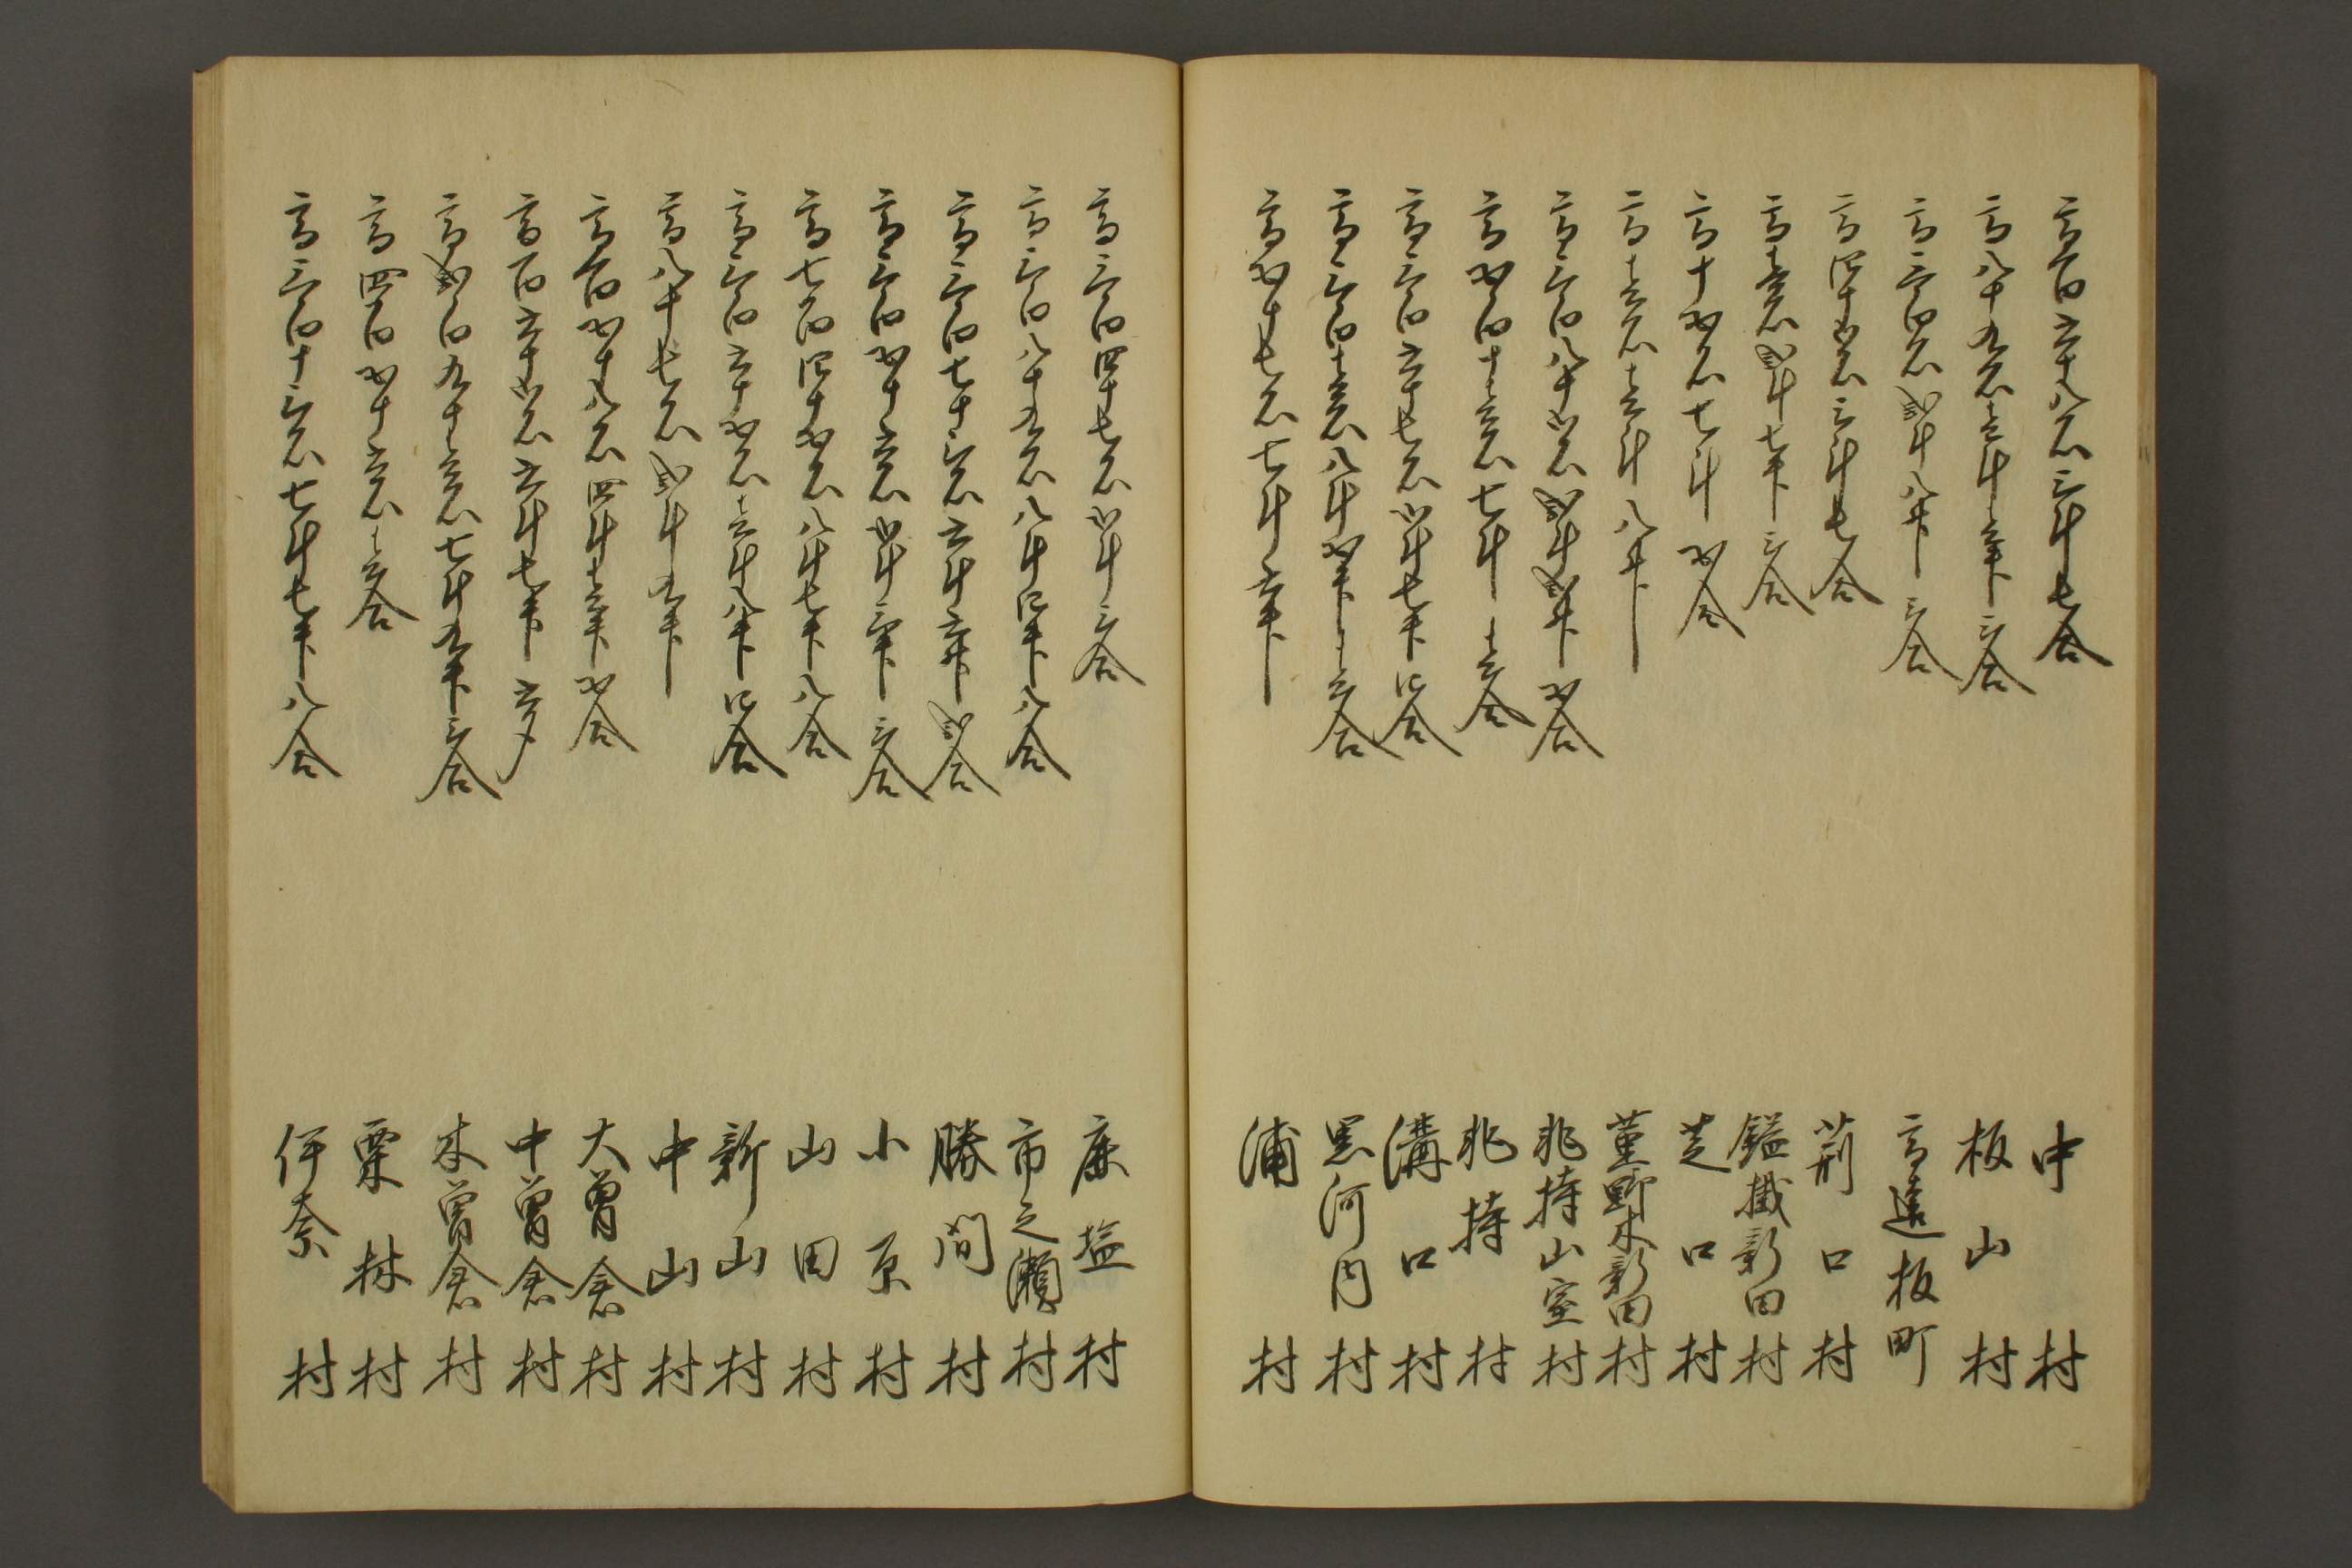 高百六十八石三斗七合 中村
高八十九石壱斗壱升三合 板山村
高三百石弐斗八升三合 高遠板町
高四十五石三斗七合 荊口村
高壱石弐斗七升三合 鎰掛新田村
高十弐石七斗弐合 芝口村
高壱石壱斗八升 菫野木新田村
高三百八十五石弐斗弐升弐合 非持山室村
高弐百十壱石七斗壱合 非持村
高三百六十七石五斗七升四合 溝口村
高三百壱石八斗弐升壱合 黒河内村
高弐十七石七斗六升 浦村
高三百四十七石五斗三合 鹿塩村
高三百八十九石八斗四升八合 市之瀬村
高三百七十三石六斗六升弐合 勝間村
高三百弐十六石五斗三升三合 小原村
高七百四十弐石八斗七升八合 山田村
高三百六十弐石壱斗八升四合 新山村
高八十七石弐斗九升 中山村
高百弐十八石四斗壱升弐合 大曽倉村
高百六十五石六斗七升六夕 中曽倉村
高弐百九十壱石七斗九升三合 本曽倉村
高四百弐十六石壱合 栗林村
高三百十三石七斗七升八合 伊奈村